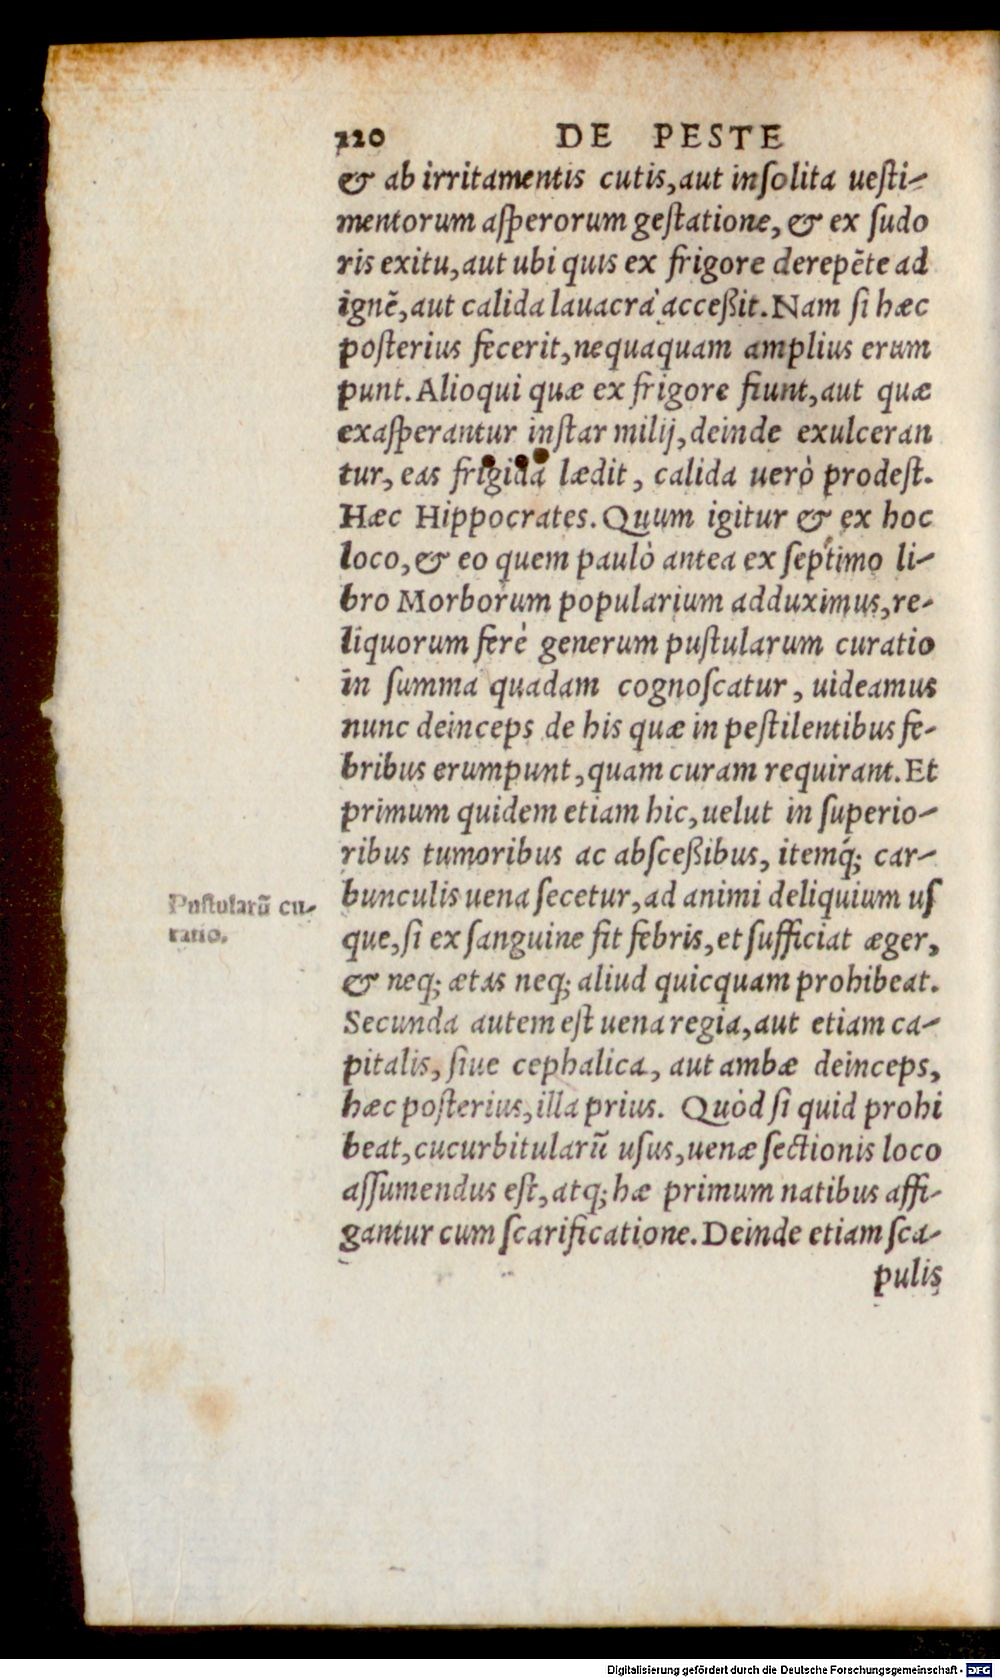 220 DE PESTE
& ab irritamentis cutis, aut inſolita ueſti-
mentorum aſperorum geſtatione, & ex ſudo
ris exitu, aut ubi quis ex frigore derepẽte ad
ignẽ, aut calida lauacra acceßit. Nam ſi hæc
poſterius fecerit, nequaquam amplius erum
punt. Alioqui quæ ex frigore fiunt, aut quæ
exaſperantur inſtar milij, deinde exulceran
tur, eas frigida lædit, calida uerò prodeſt.
Hæc Hippocrates. Quum igitur & ex hoc
loco, & eo quem paulò antea ex ſeptimo li-
bro Morborum popularium adduximus, re-
liquorum ferè generum puſtularum curatio
in ſumma quadam cognoſcatur, uideamus
nunc deinceps de his quæ in peſtilentibus fe-
bribus erumpunt, quam curam requirant. Et
primum quidem etiam hic, uelut in ſuperio-
ribus tumoribus ac abſceßibus, itemq́; car-
bunculis uena ſecetur, ad animi deliquium uſ
que, ſi ex ſanguine fit febris, et ſufficiat æger,
& neq; ætas neq; aliud quicquam prohibeat.
Secunda autem eſt uena regia, aut etiam ca-
pitalis, ſiue cephalica, aut ambæ deinceps,
hæc poſterius, illa prius. Quòd ſi quid prohi
beat, cucurbitularũ uſus, uenæ ſectionis loco
aſſumendus eſt, atq; hæ primum natibus affi-
gantur cum ſcarificatione. Deinde etiam ſca-
pulis
Puſtularũ cu-
ratio.
Digitalisierung gefördert durch die Deutsche Forschungsgemeinschaft - DFG